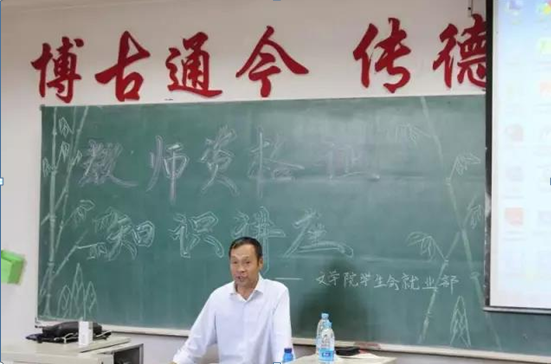 博古通今 传德
教师资格证
知识讲座
——文学院学生会就业部